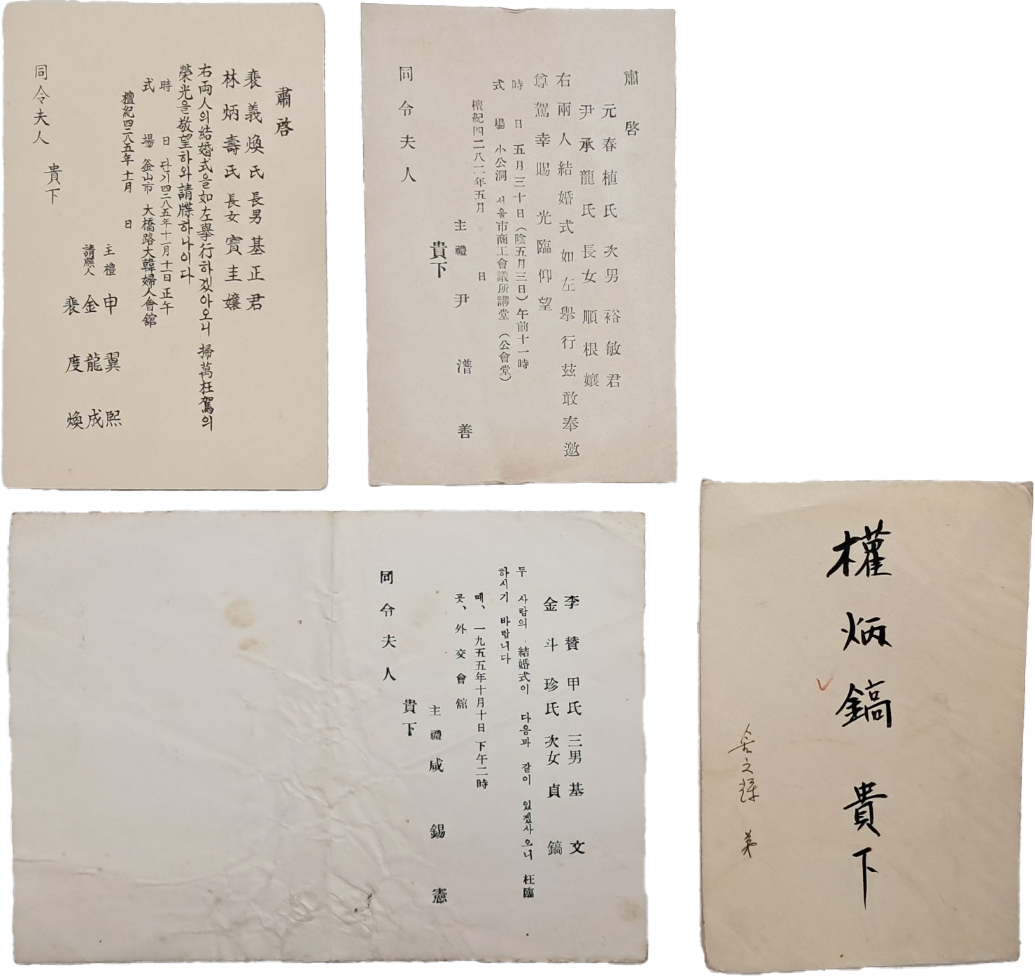 肅啓
裵義煥氏 長男 基正君
林炳壽氏 長女 寶圭孃
右両人의結婚式을如左擧行하겠아오니 掃萬枉駕의
榮光을敬望하와請牒하나이다
時 日 단기四二八五年十一月十一日 正午
式 場 釜山市 大橋路大韓婦人會舘
檀紀四二八五年十一月 日
主禮 申翼熙
請牒人 金龍成
裵度煥
同令夫人 貴下
肅啓
元春植氏 次男 裕敏君
尹承龍氏 長女 順根孃
右兩人結婚式如左擧行玆敢奉邀
尊駕幸賜 光臨仰望
時 日 五月三十日(陰五月三日)午前十一時
式 場 小公洞 서울市商工會議所講堂(公會堂)
檀紀四二八二年五月 日
主禮 尹潽善
貴下
同令夫人
李賛甲氏 三男 基文
金斗珍氏 次女 貞鎬
두 사람의 結婚式이 다음과 같이 있겠사오니 枉臨
하시기 바랍니다
때、一九五五年十月十日 下午二時
곳、外交會舘
主禮 咸錫憲
貴下
同令夫人
權炳鎬 貴下